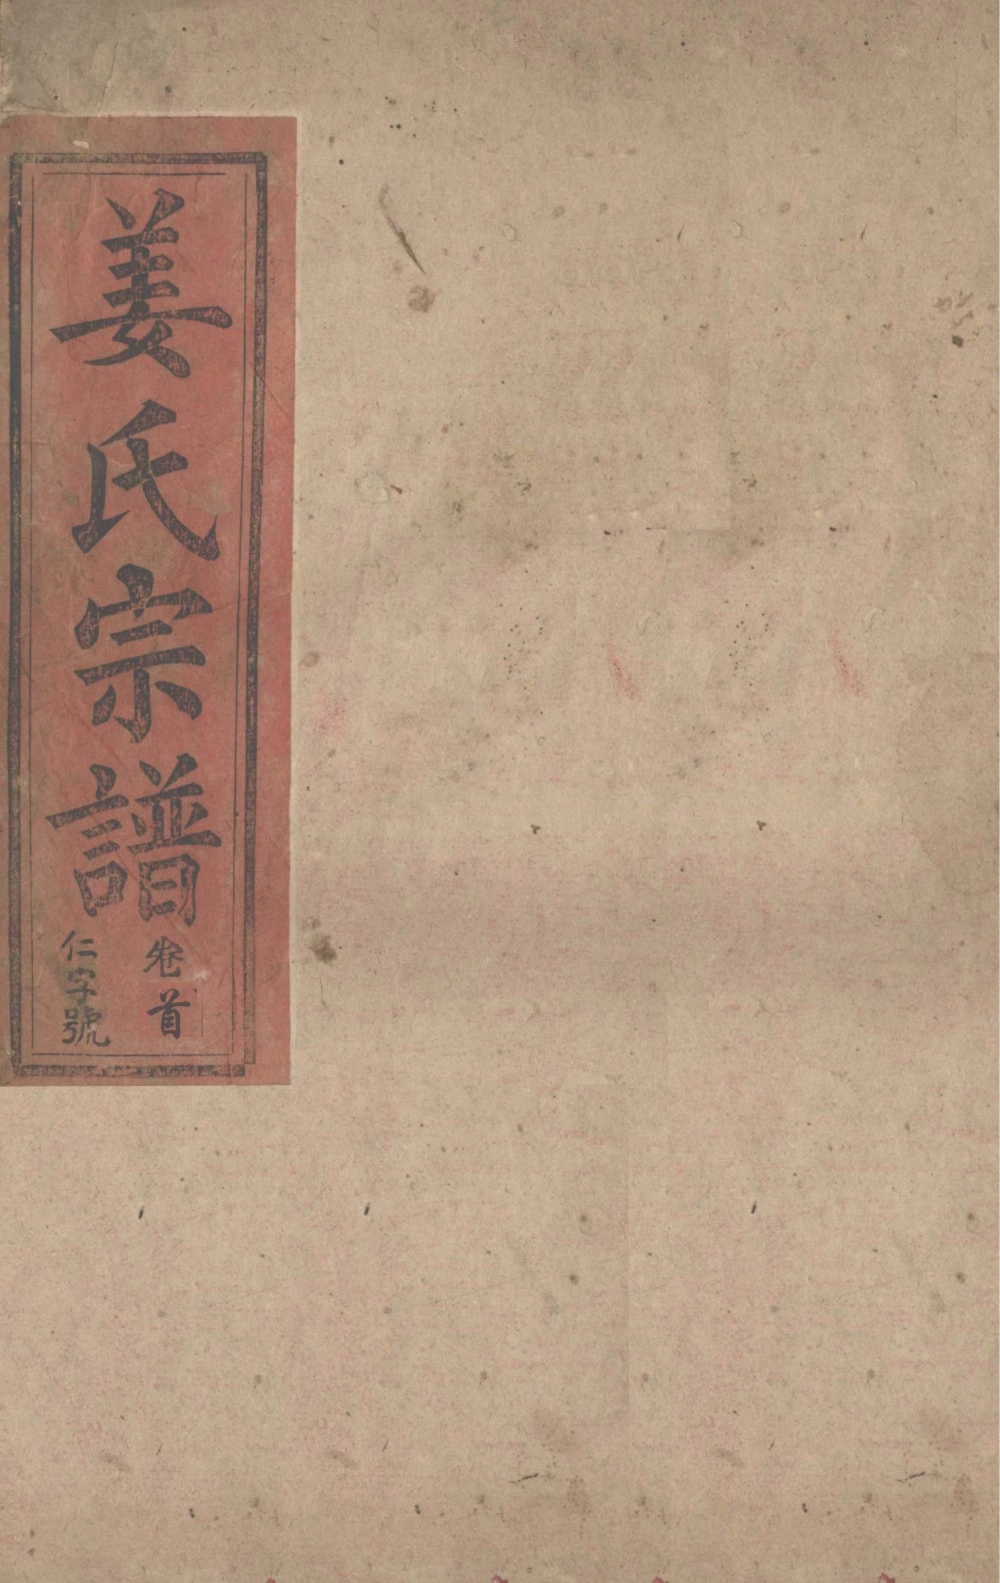 姜氏宗譜
卷首
仁字號